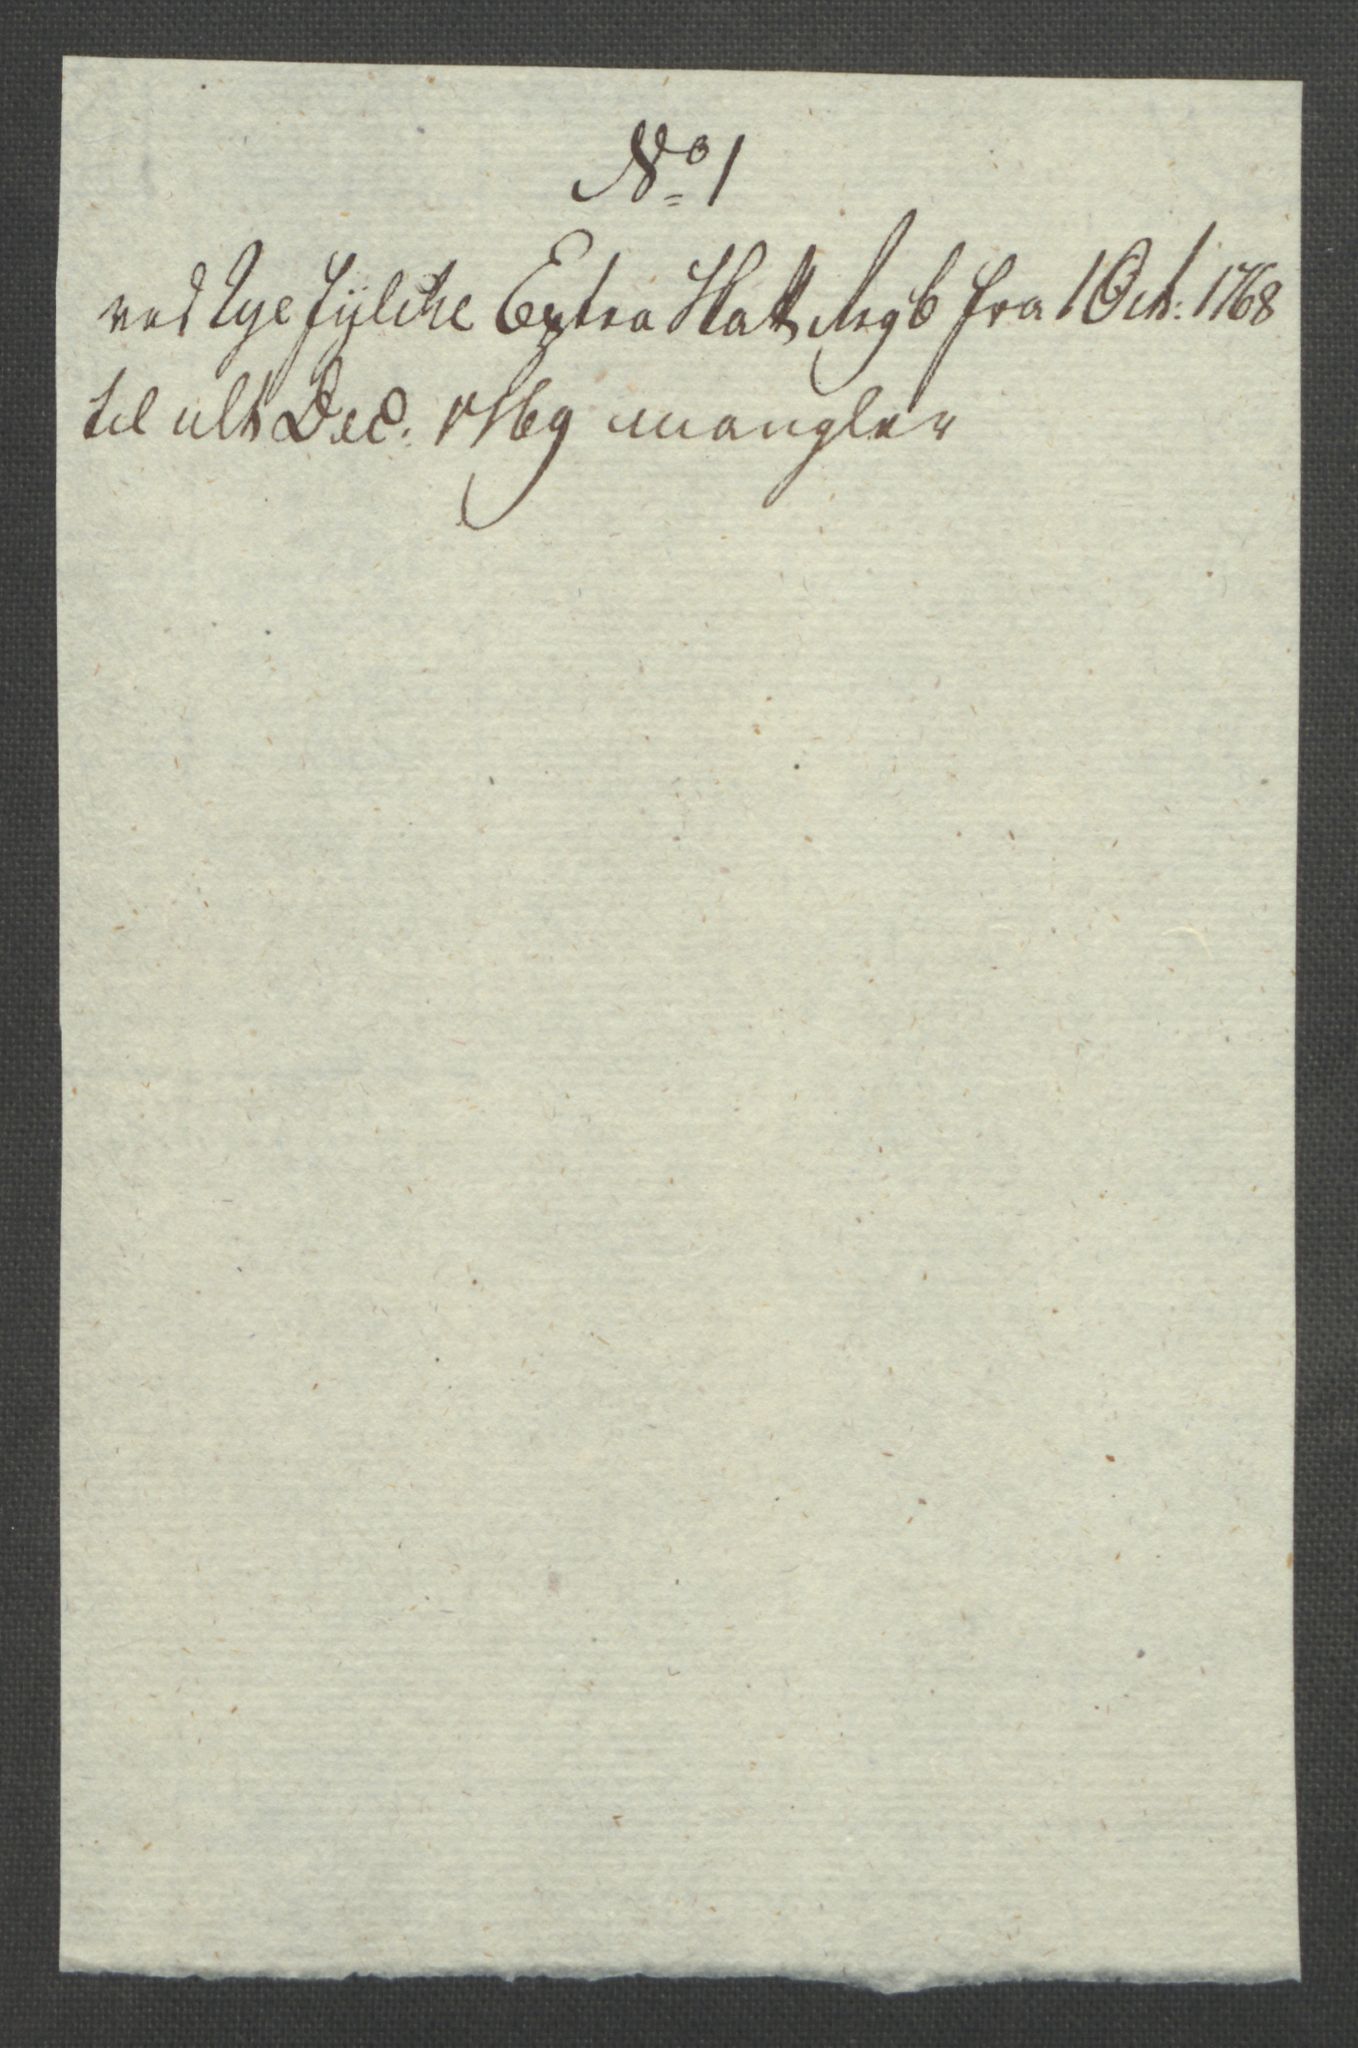 No 1
ved Rye fylcke Extra Skatt Rgb fra 1 Oct: 1768
til ult Dec: 1769 mangler